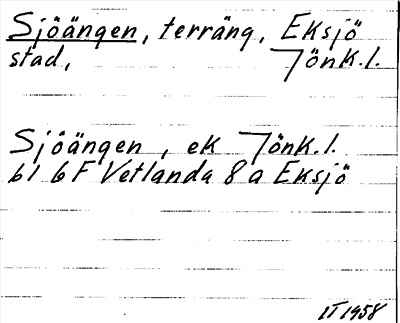 Sjöängen, terräng, Eksjö
stad, Jönk.l.
Sjöängen, ek Jönk.l.
bl 6F Vetlanda 8a Eksjö
IT 1958